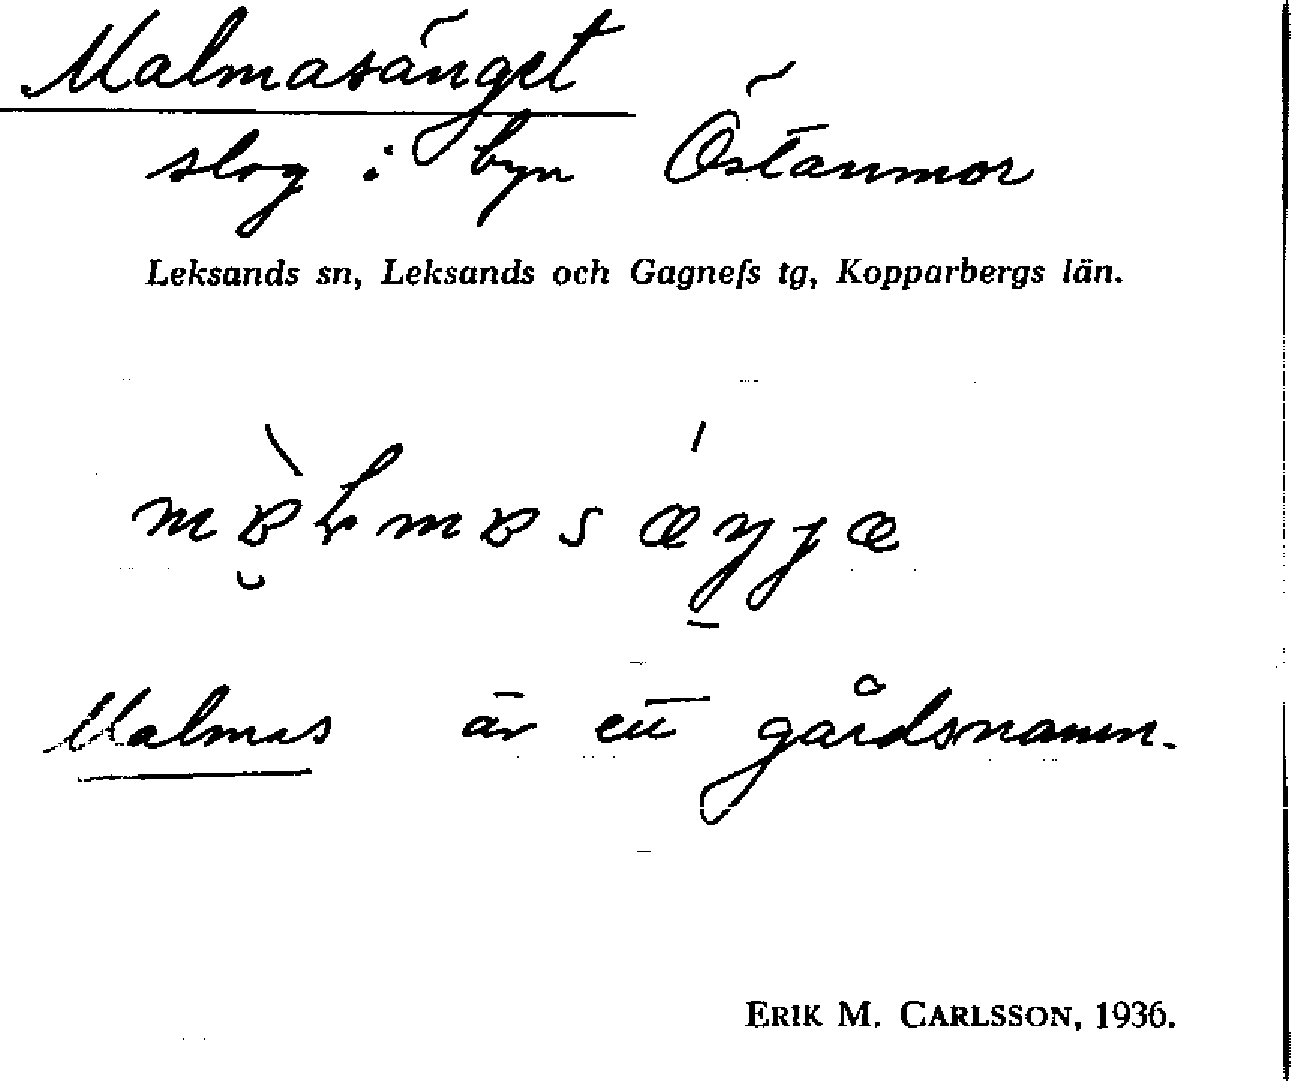 Malmasänget
slog i byn Östanmor
Leksands sn, Leksands och Gagnefs tg, Kopparbergs län.
Malmas är ett gårdsnamn.
ERIK M. CARLSSON, 1936.